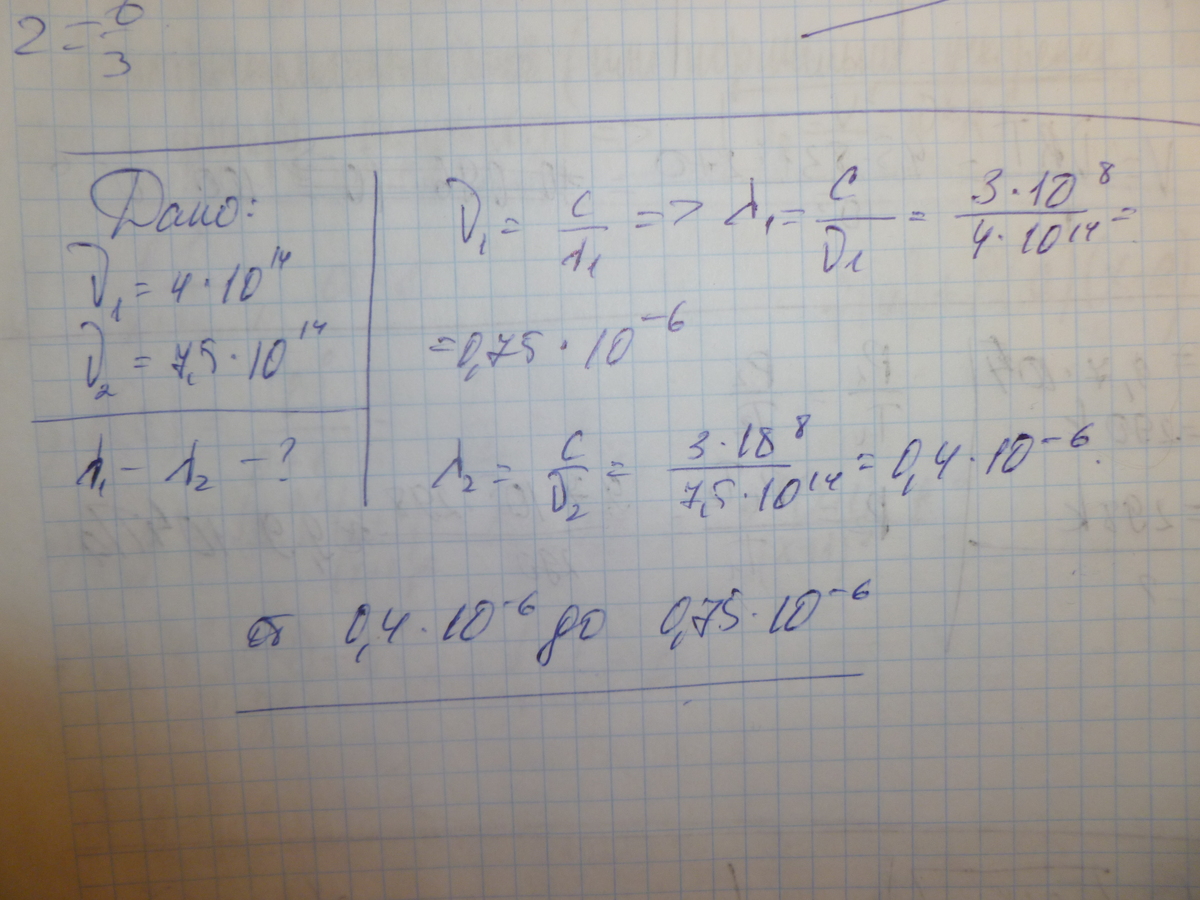 2 = 6/3
Дано:
ν₁ = 4·10¹⁴
ν₂ = 7,5·10¹⁴
λ₁ - λ₂ - ?
ν₁ = c/λ₁ => λ₁ = c/ν₁ = 3·10⁸/4·10¹⁴ =
= 0,75·10⁻⁶
λ₂ = c/ν₂ = 3·18⁸/7,5·10¹⁴ = 0,4·10⁻⁶.
от 0,4·10⁻⁶ до 0,75·10⁻⁶